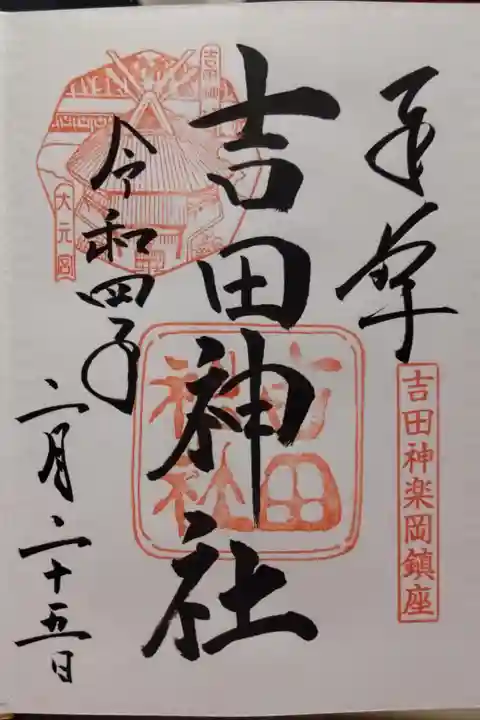 奉拝
吉田神楽岡鎮座
吉田神社
吉田神社
吉田神社
大元宮
令和四年
二月二十五日